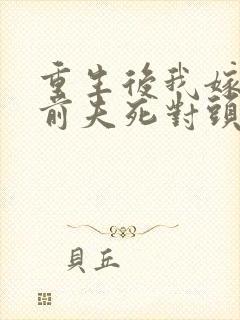 重生後我嫁
前夫死對頭
貝丘